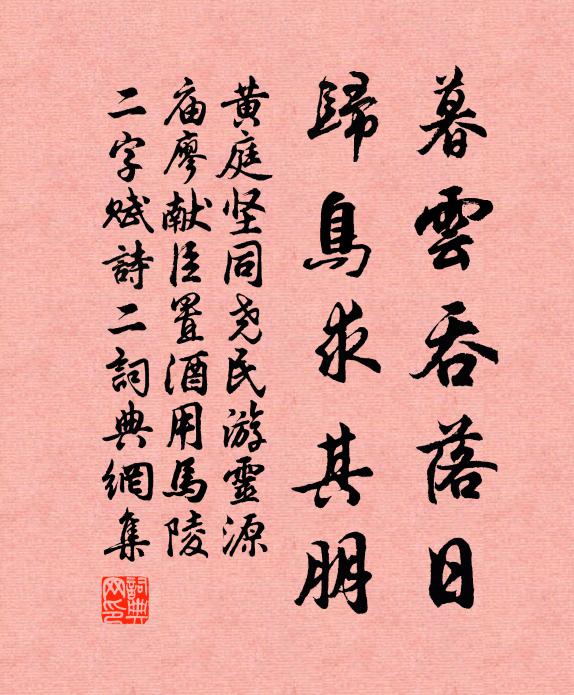 暮雲吞落日
歸鳥求其朋
黄庭坚同尧民游靈源
庙廖献臣置酒用馬陵
二字赋詩二詞典網集
詞典
网